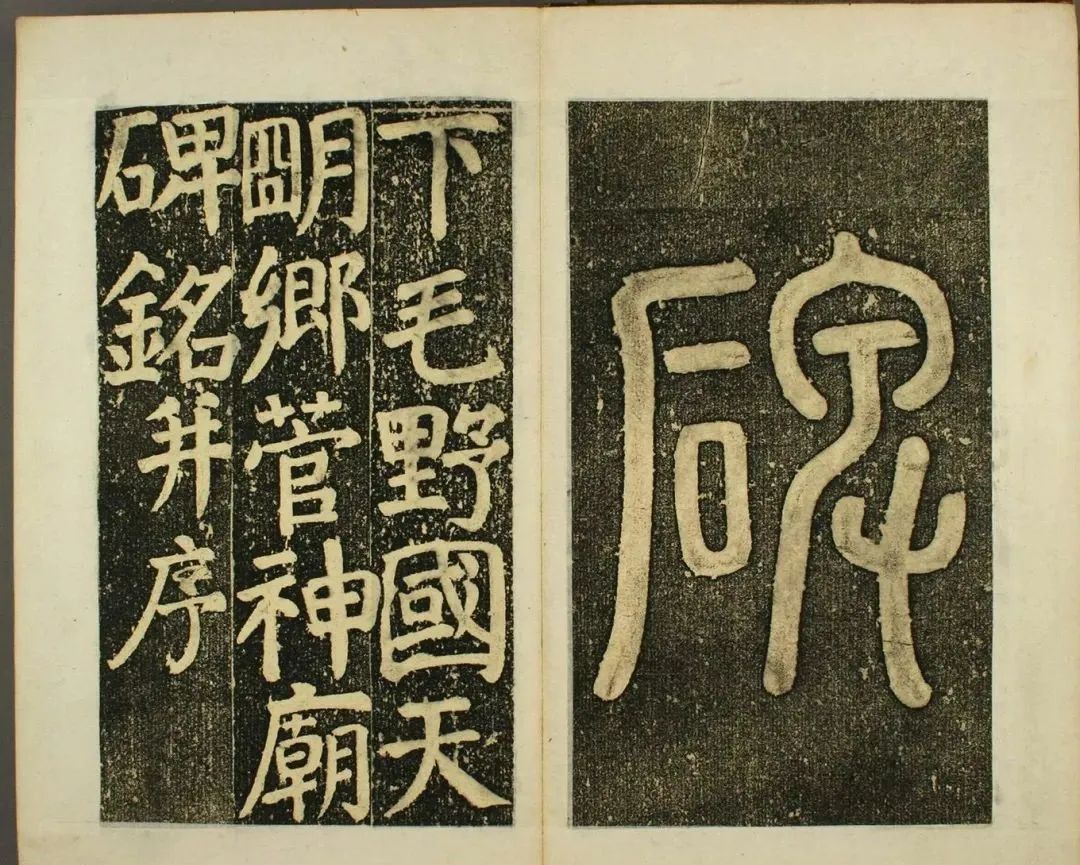 碑
下毛野國天
朙鄉菅神廟
碑銘并序